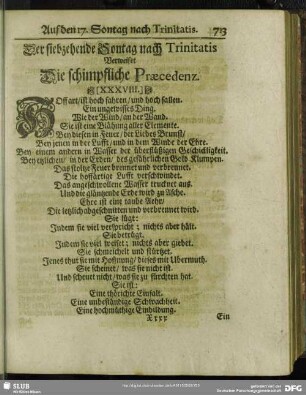 Auf den 17. Sontag nach Trinitatis. 713
Der siebzehende Sontag nach Trinitatis
Verweiset
Die schimpfliche Præcedenz.
[XXXVIII.]
Hoffart / ist hoch fahren / und hoch fallen.
Ein ungewisses Ding.
Wie der Wind / an der Wand.
Sie ist eine Blähung aller Elemente.
Bey diesen in Feuer / der Liebes Brunst /
Bey jenen in der Lufft / und in dem Winde der Ehre.
Bey einem andern in Wasser der überflüßigen Geschicklichkeit.
Bey etzlichen / in der Erden / des gefährlichen Geld Klumpen.
Das stoltze Feuer brennet und verbrennet.
Die hoffärtige Lufft verschwindet.
Das angeschwollene Wasser trucknet aus.
Und die gläntzende Erde wird zu Asche.
Ehre ist eine taube Aehr /
Die letzlich abgeschnitten und verbrennet wird.
Sie lügt:
Indem sie viel verspricht ; nichts aber hält.
Sie betrügt.
Indem sie viel weiset ; nichts aber giebet.
Sie schmeichelt und stürtzet.
Jenes thut sie mit Hoffnung / dieses mit Ubermuth.
Sie scheinet / was sie nicht ist.
Und scheuet nicht / was sie zu fürchten hat.
Sie ist:
Eine thörichte Einfalt.
Eine unbeständige Schwachheit.
Eine hochmüthige Einbildung.
Xxxx Ein
SLUB